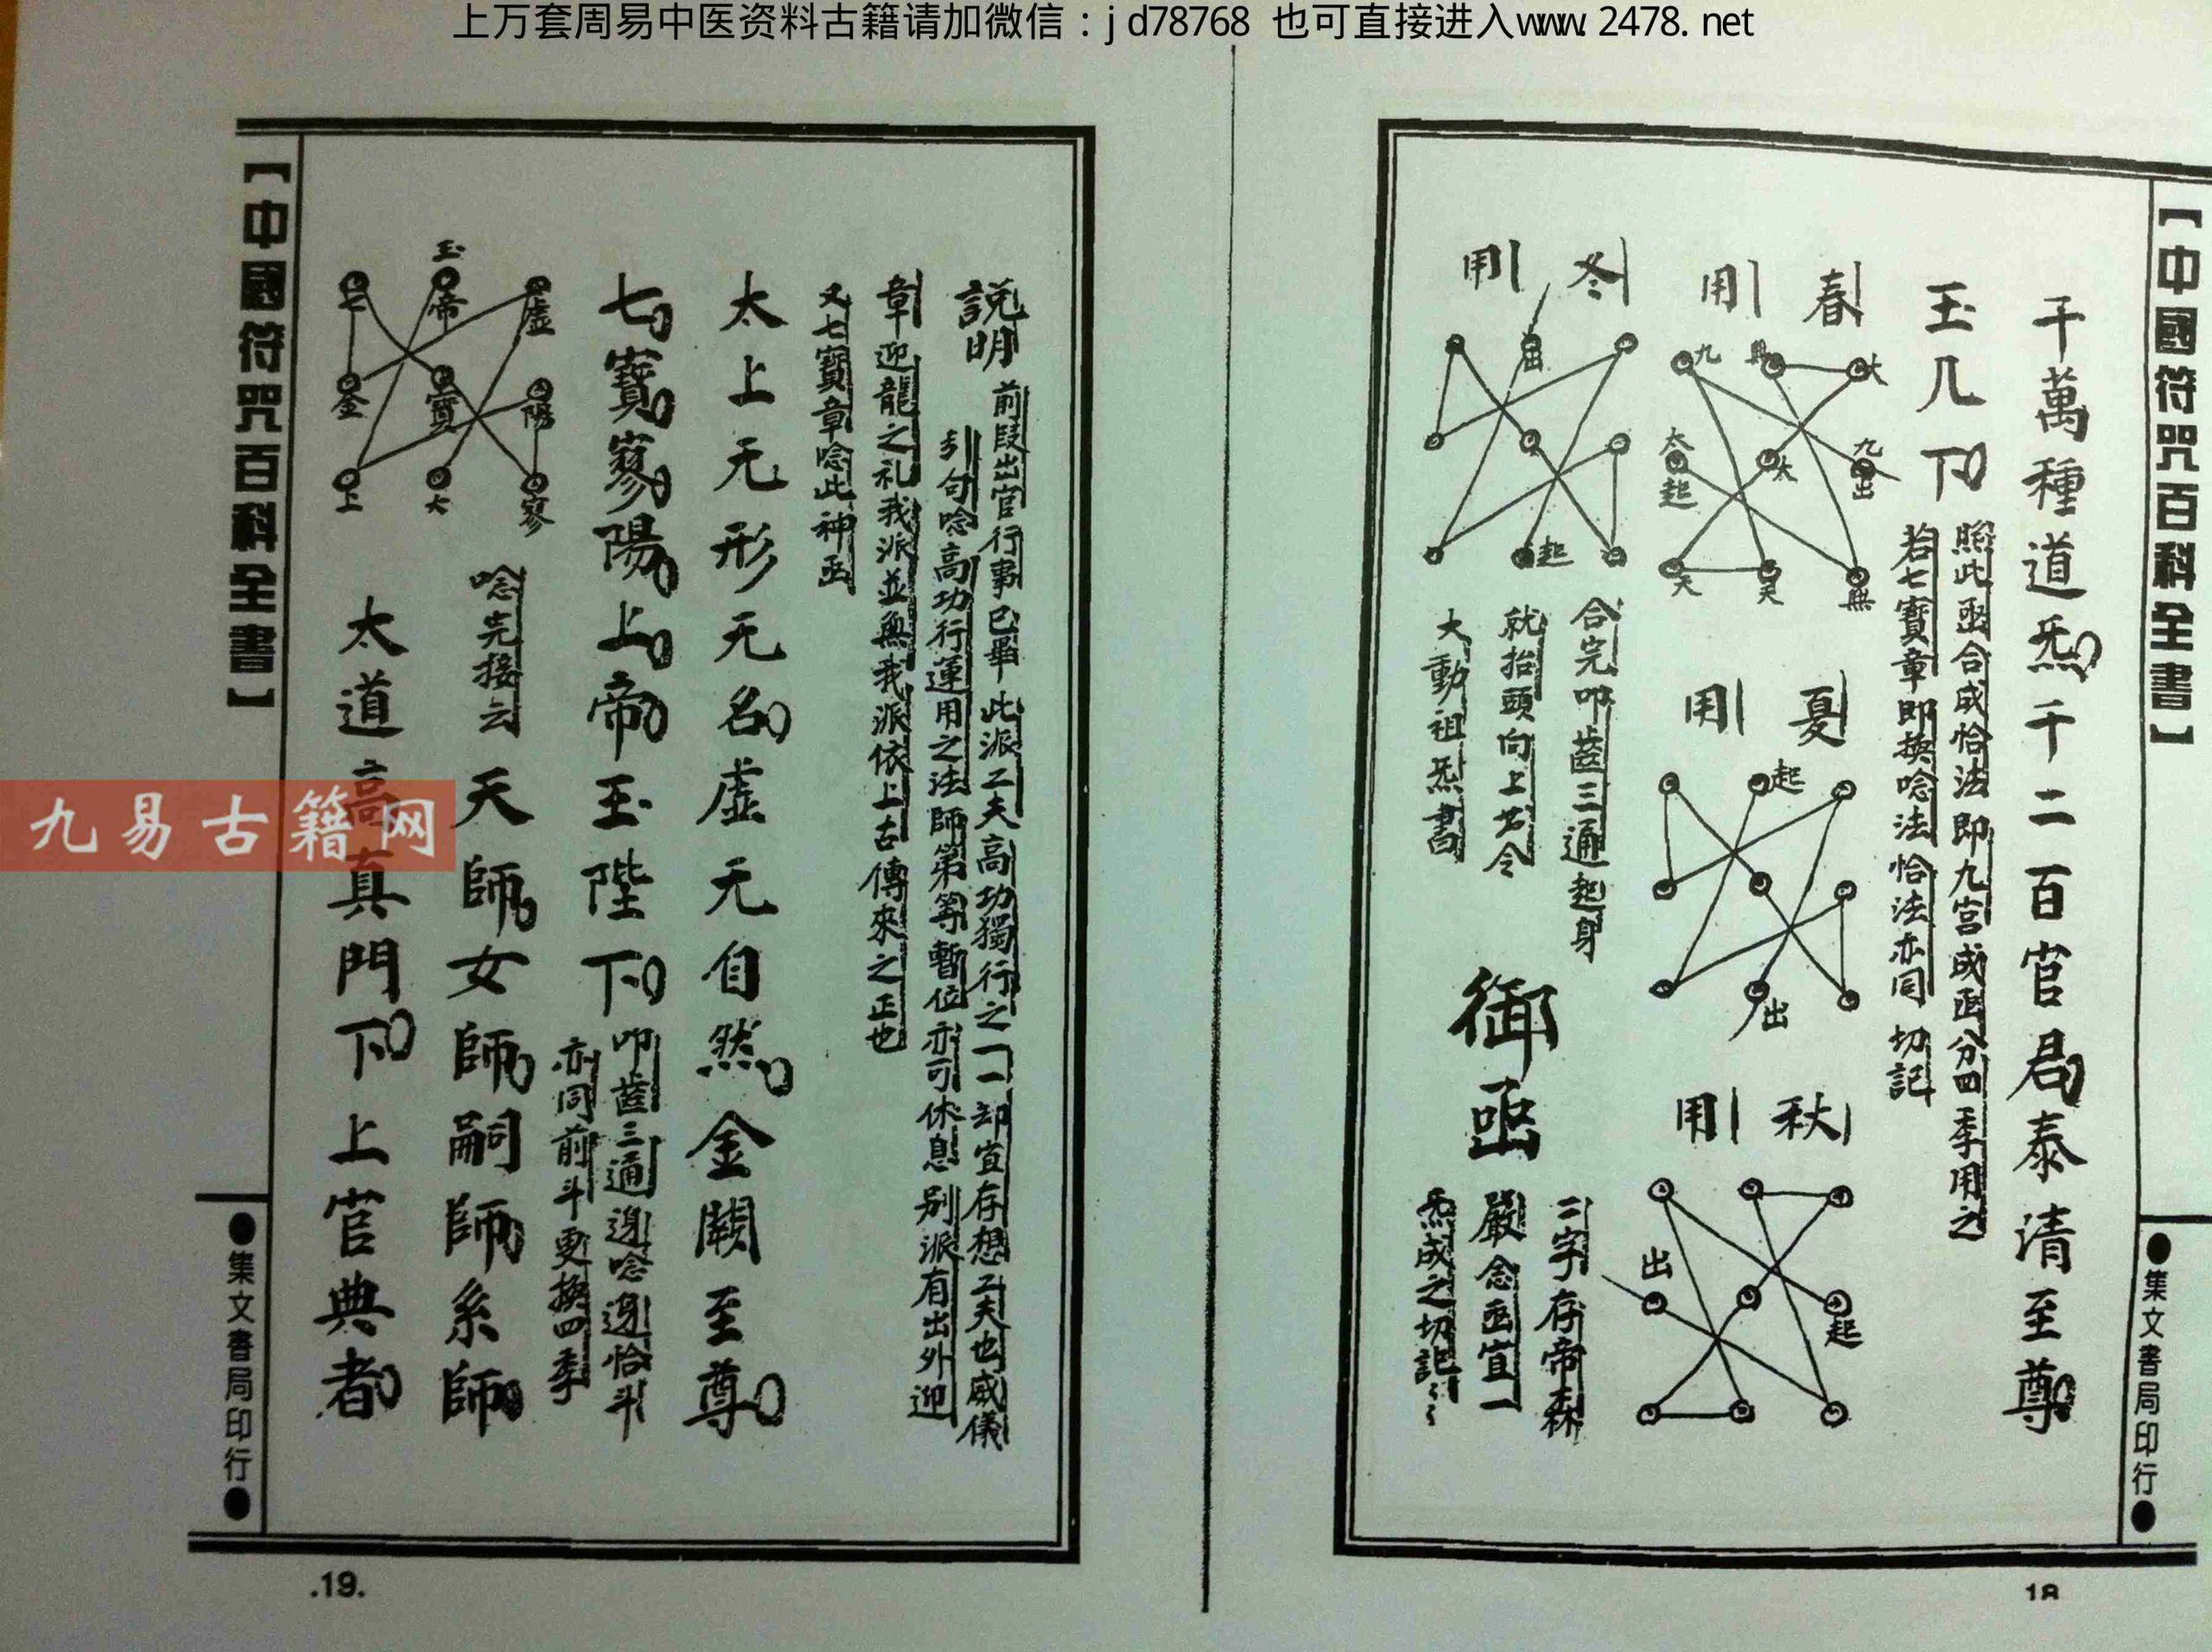 上万套周易中医资料古籍请加微信：jd78768 也可直接进入www.2478.net
【中國符咒百科全書】
●集文書局印行●
千萬種道炁千二百官君泰清至尊
玉几下
照此函合成恰法即九宮成函分四季用之
若七寶章即換唸法恰法亦同 切記
春用
九
無
大
太起
太
九出
天
昊
無
夏用
起
出
秋用
出
起
冬用
出
起
合完叩齒三通起身
就抬頭向上書令
大動祖炁書
御函
三字存帝森
嚴念函宜一
炁成之切記
18
說明
前段出官行事已畢 此派工夫高功獨行之一一却宜存想工夫也威儀
引句唸高功行運用之法師第等暫位亦可休息 別派有出外迎
章迎龍之礼我派並無我派依上古傳來之正也
又七寶章唸此神函
太上无形无名虛无自然金闕至尊
七寶寥陽上帝玉陛下
叩齒三通邊唸邊恰斗
亦同前斗更換四季
七
玉帝
虛
寶
陽
上
大
寥
唸完接云
天師女師嗣師系師
太道高真門下上官典者
【中國符咒百科全書】
●集文書局印行●
九易古籍网
.19.